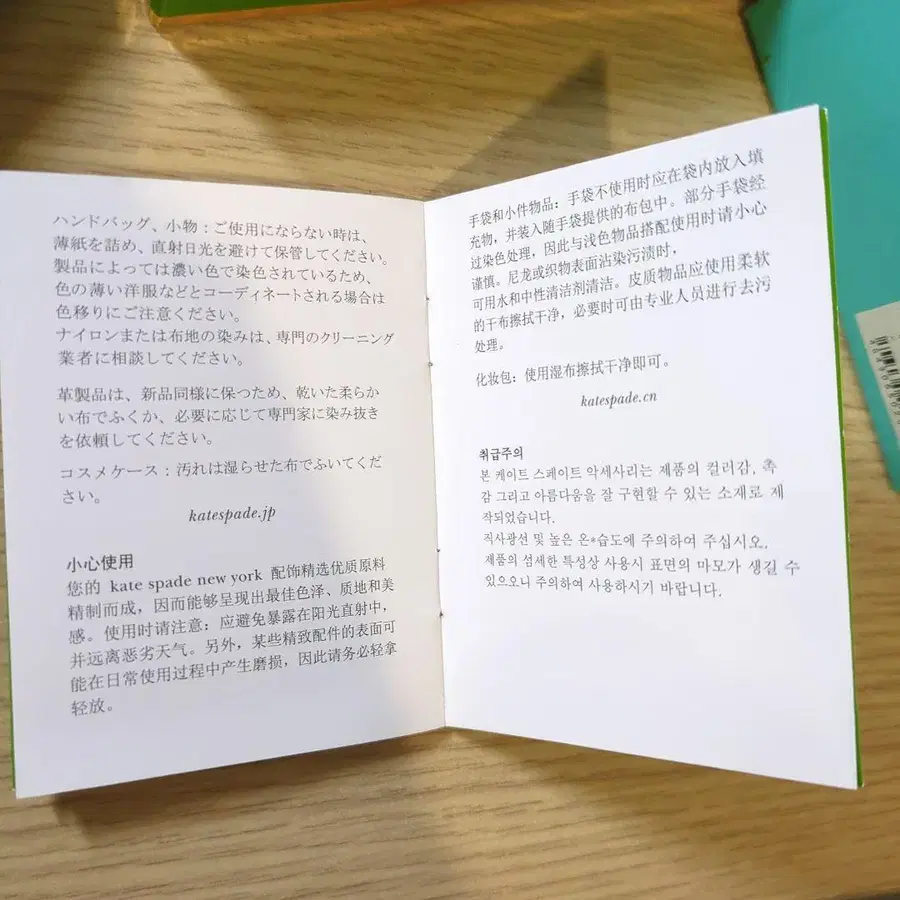 ハンドバッグ、小物：ご使用にならない時は、
薄紙を詰め、直射日光を避けて保管してください。
製品によっては濃い色で染色されているため、
色の薄い洋服などとコーディネートされる場合は
色移りにご注意ください。
ナイロンまたは布地の染みは、専門のクリーニング
業者に相談してください。
革製品は、新品同様に保つため、乾いた柔らか
い布でふくか、必要に応じて専門家に染み抜き
を依頼してください。
コスメケース：汚れは湿らせた布でふいてくだ
さい。
katespade.jp
小心使用
您的 kate spade new york 配饰精选优质原料
精制而成，因而能够呈现出最佳色泽、质地和美
感。使用时请注意：应避免暴露在阳光直射中，
并远离恶劣天气。另外，某些精致配件的表面可
能在日常使用过程中产生磨损，因此请务必轻拿
轻放。
手袋和小件物品：手袋不使用时应在袋内放入填
充物，并装入随手袋提供的布包中。部分手袋经
过染色处理，因此与浅色物品搭配使用时请小心
谨慎。尼龙或织物表面沾染污渍时，
可用水和中性清洁剂清洁。皮质物品应使用柔软
的干布擦拭干净，必要时可由专业人员进行去污
处理。
化妆包：使用湿布擦拭干净即可。
katespade.cn
취급주의
본 케이트 스페이트 악세사리는 제품의 컬러감, 촉
감 그리고 아름다움을 잘 구현할 수 있는 소재로 제
작되었습니다.
직사광선 및 높은 온*습도에 주의하여 주십시오.
제품의 섬세한 특성상 사용시 표면의 마모가 생길 수
있으오니 주의하여 사용하시기 바랍니다.